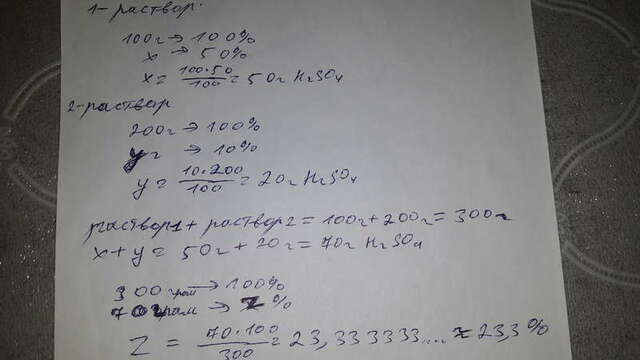 1-раствор:
100г → 100%
x → 50%
x = 100·50/100 = 50г H₂SO₄
2-раствор
200г → 100%
yг → 10%
y = 10·200/100 = 20г H₂SO₄
раствор1 + раствор2 = 100г + 200г = 300г
x + y = 50г + 20г = 70г H₂SO₄
300 → 100%
70 → z %
z = 70·100/300 = 23,333333... ≈ 23,3%